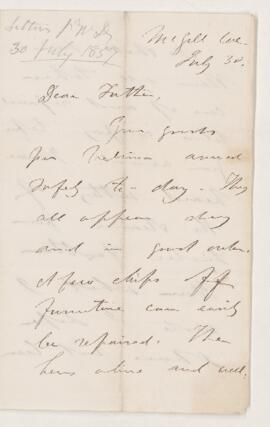 Letter J. W. D.
30 July 1857
McGill Col.
July 30.
Dear Father,
Your goods
per arrived
safely to-day. They
all appear dry
and in good order.
A few chips off
furniture can easily
be repaired. The
hens alive and well.